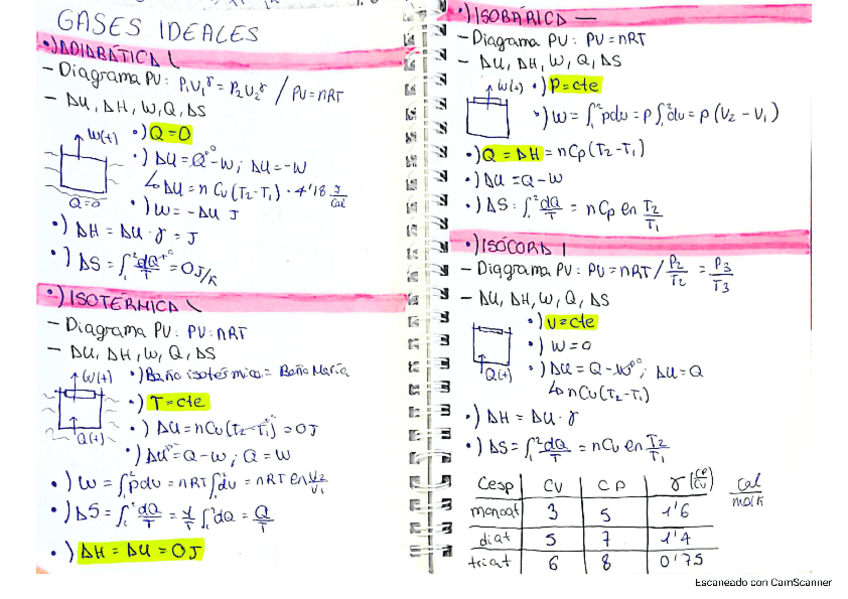 GASES IDEALES
•) ADIABÁTICA
- Diagrama PV: P₁V₁^γ = P₂V₂^γ / PV=nRT
- ΔU, ΔH, W, Q, ΔS
W(+) •) Q=0
•) ΔU=Q⁰-W; ΔU=-W
↳ ΔU = n Cv (T₂-T₁) · 4'18 J/Cal
Q=0
•) W = -ΔU J
•) ΔH = ΔU · γ = J
•) ΔS = ∫₁² dQ⁰/T = 0 J/K
•) ISOTÉRMICA
- Diagrama PV: PV=nRT
- ΔU, ΔH, W, Q, ΔS
W(+) •) Baño isotérmico = Baño María
•) T=cte
Q(+) •) ΔU = nCv(T₂-T₁)⁰ = 0J
•) ΔU⁰ = Q-W; Q=W
•) W = ∫₁² pdv = nRT ∫₁² dv = nRT en V₂/V₁
•) ΔS = ∫₁² dQ/T = 1/T ∫₁² dQ = Q/T
•) ΔH = ΔU = 0J
•) ISOBÁRICA —
- Diagrama PV: PV=nRT
- ΔU, ΔH, W, Q, ΔS
W(+) •) P=cte
•) W = ∫₁² pdv = P ∫₁² dv = P (V₂ - V₁)
•) Q = ΔH = nCp(T₂-T₁)
•) ΔU = Q-W
•) ΔS: ∫₁² dQ/T = nCp en T₂/T₁
•) ISÓCORA |
- Diagrama PV: PV=nRT / P₂/T₂ = P₃/T₃
- ΔU, ΔH, W, Q, ΔS
•) V=cte
•) W=0
Q(+) •) ΔU = Q-W⁰; ΔU=Q
↳ nCv(T₂-T₁)
•) ΔH = ΔU · γ
•) ΔS = ∫₁² dQ/T = nCv en T₂/T₁
Cesp CV CP γ (CP/CV) Cal/molK
monoat 3 5 1'6
diat 5 7 1'4
triat 6 8 0'75
Escaneado con CamScanner